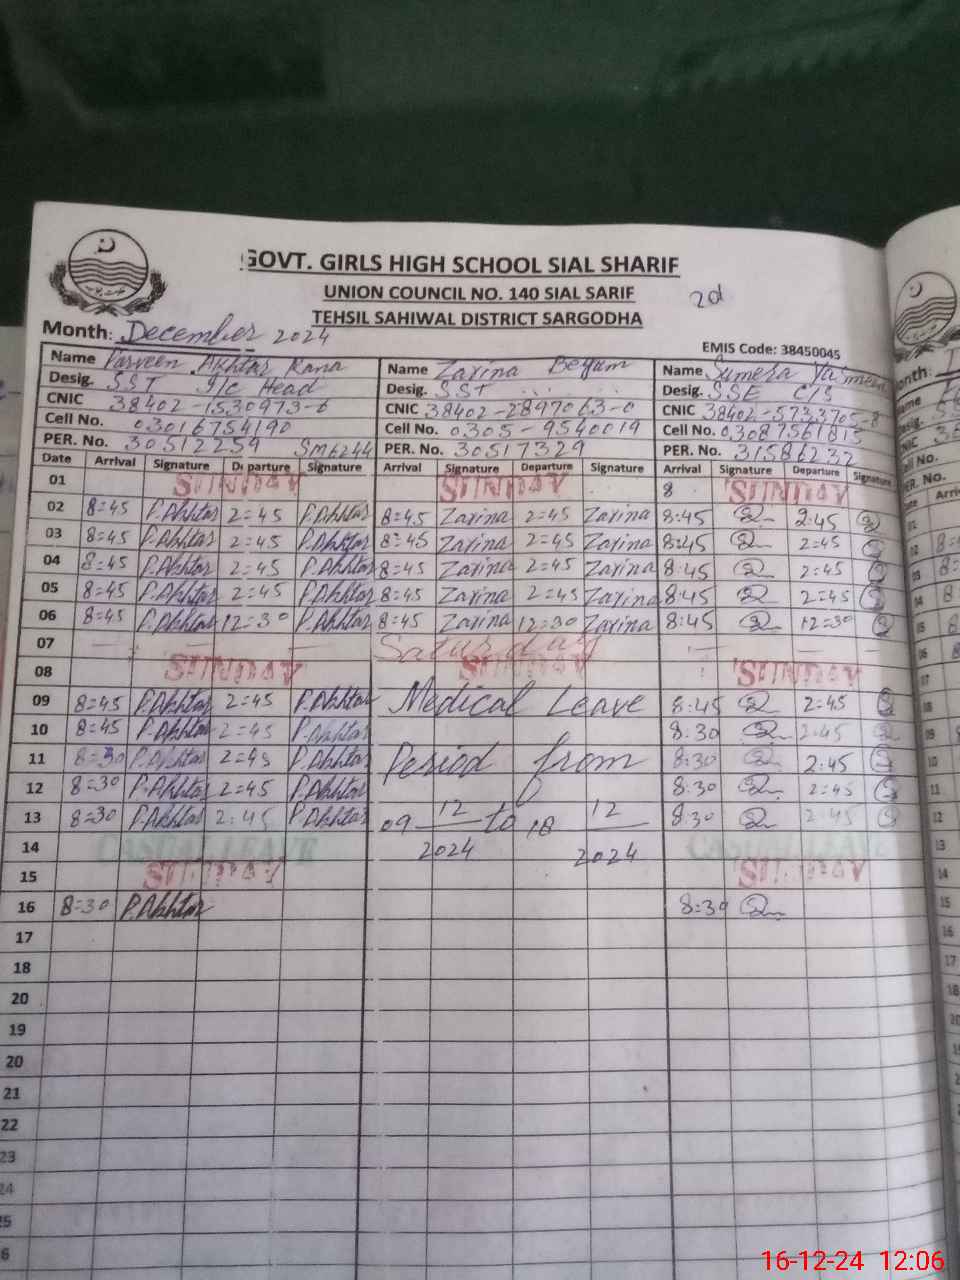 GOVT. GIRLS HIGH SCHOOL SIAL SHARIF
UNION COUNCIL NO. 140 SIAL SARIF
2d
TEHSIL SAHIWAL DISTRICT SARGODHA
Month: December 2024
EMIS Code: 38450045
Name Parveen Akhtar Rana Name Zarina Begum Name Sumera Yasmeen
Desig. SST I/C Head Desig. SST Desig. SSE C/S
CNIC 38402-1530973-6 CNIC 38402-2897063-0 CNIC 38402-5733705-8
Cell No. 03016754190 Cell No. 0305-9540019 Cell No. 03087561815
PER. No. 30512259 SM6244 PER. No. 30517329 PER. No. 31586232
Date Arrival Signature Departure Signature Arrival Signature Departure Signature Arrival Signature Departure Signature
01 SUNDAY SUNDAY 8 SUNDAY
02 8=45 P.Akhtar 2=45 P.Akhtar 8=45 Zarina 2=45 Zarina 8:45 2:45
03 8=45 P.Akhtar 2=45 P.Akhtar 8=45 Zarina 2=45 Zarina 8:45 2=45
04 8=45 P.Akhtar 2=45 P.Akhtar 8=45 Zarina 2=45 Zarina 8:45 2=45
05 8=45 P.Akhtar 2=45 P.Akhtar 8=45 Zarina 2=45 Zarina 8:45 2=45
06 8=45 P.Akhtar 12=30 P.Akhtar 8=45 Zarina 12=30 Zarina 8:45 12=30
07 Saturday
08 SUNDAY SUNDAY SUNDAY
09 8=45 P.Akhtar 2=45 P.Akhtar Medical Leave 8:45 2:45
10 8=45 P.Akhtar 2=45 P.Akhtar 8:30 2:45
11 8=30 P.Akhtar 2=45 P.Akhtar Period from 8:30 2:45
12 8=30 P.Akhtar 2=45 P.Akhtar 8:30 2=45
13 8=30 P.Akhtar 2:45 P.Akhtar 09 12 to 18 12 8:30 2:45
14 CASUAL LEAVE 2024 2024 CASUAL LEAVE
15 SUNDAY SUNDAY
16 8=30 P.Akhtar 8=30
17
18
20
19
20
21
22
23
24
25
6
16-12-24 12:06